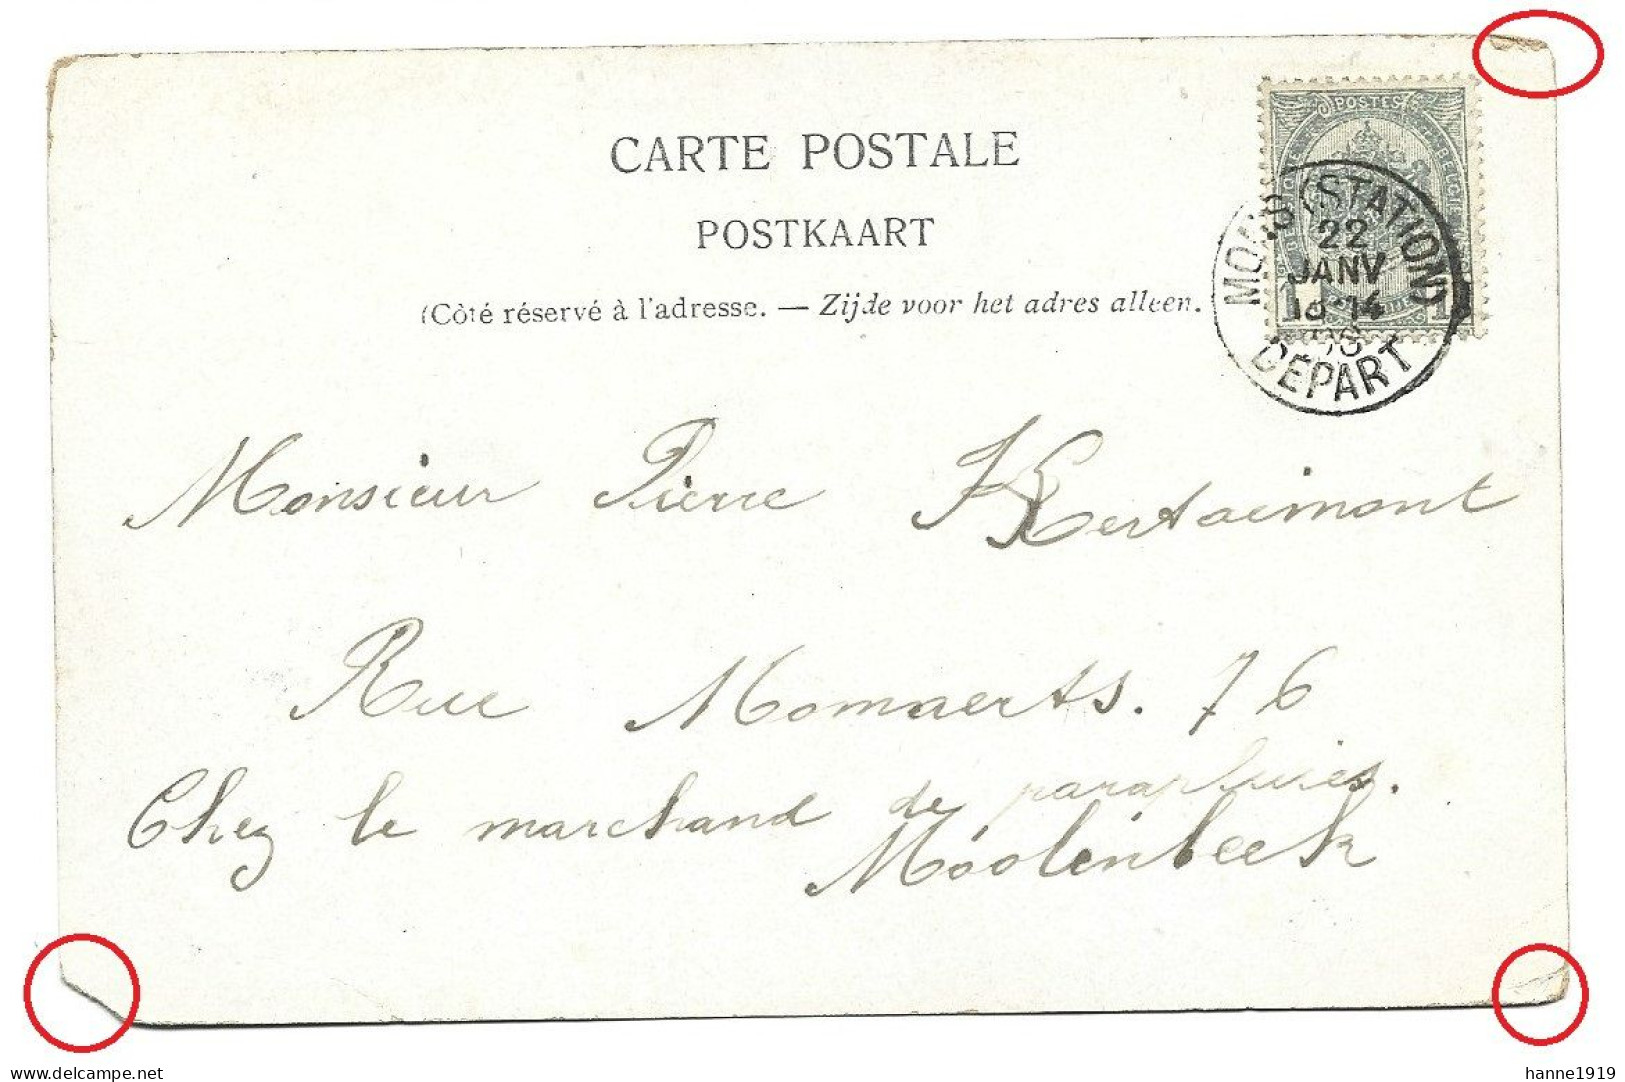 CARTE POSTALE
POSTKAART
(Côté réservé à l'adresse. — Zijde voor het adres alleen.
POSTES
MONS (STATION)
22
JANV
13-14
DÉPART
Monsieur Pierre Kertaimont
Rue Mommaerts. 76
Chez le marchand de parapluies.
Moolenbeek
www.delcampe.net
hanne1919